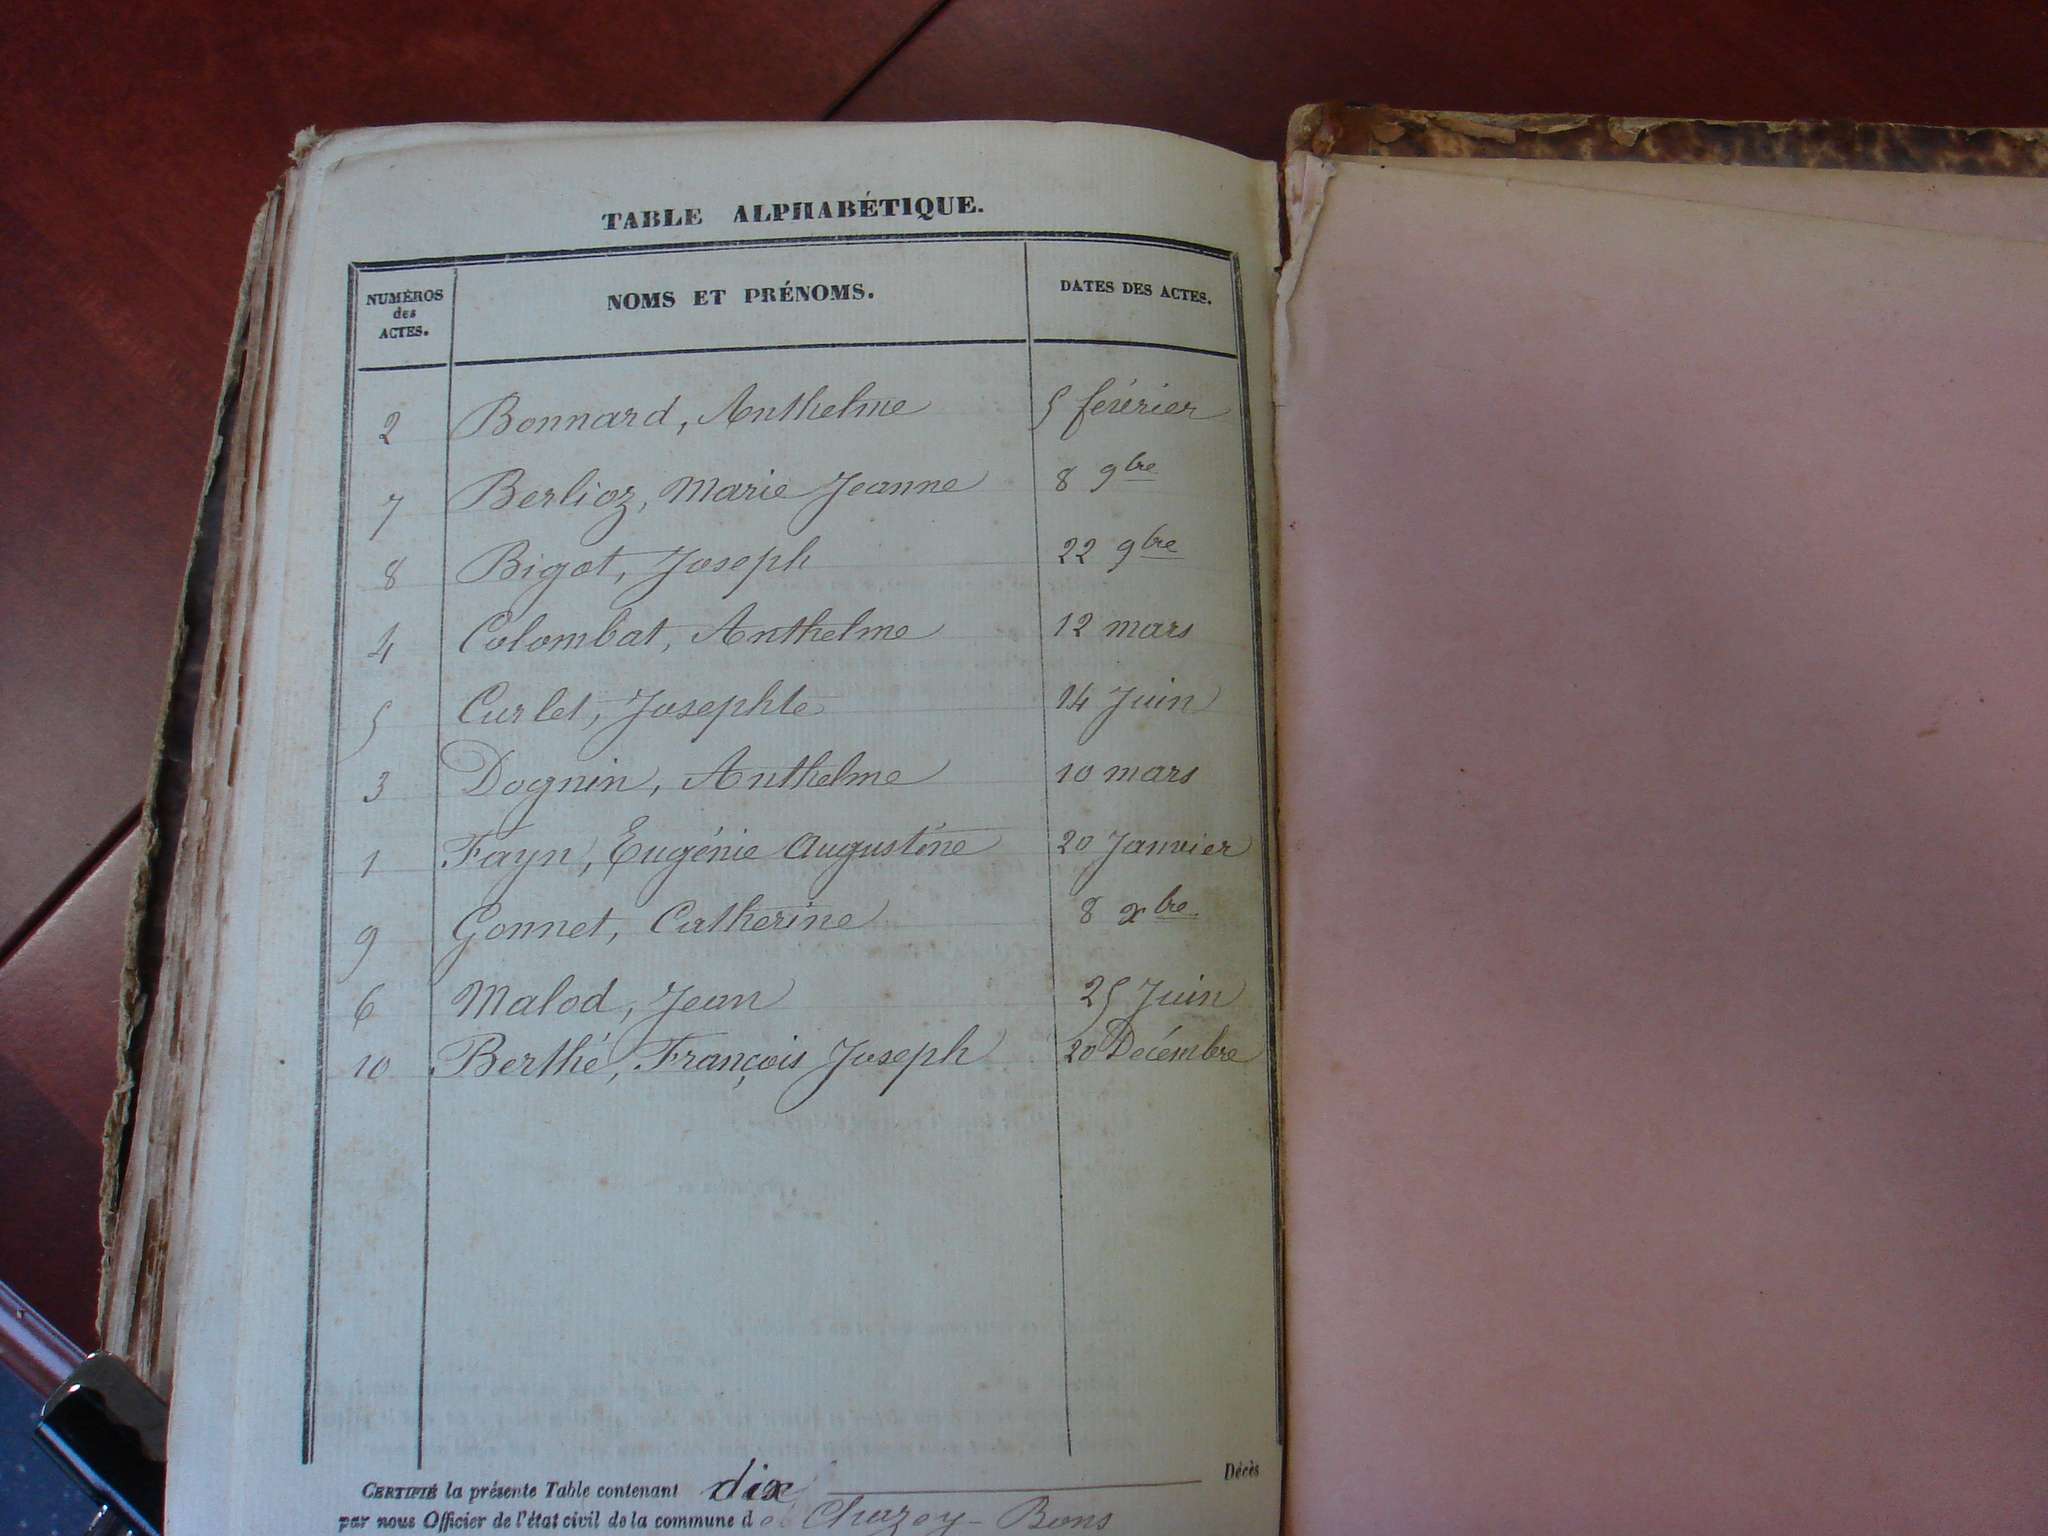 TABLE ALPHABÉTIQUE.
NUMÉROS des ACTES. NOMS ET PRÉNOMS. DATES DES ACTES.
2 Bonnard, Anthelme 5 février
7 Berlioz, Marie Jeanne 8 9bre
8 Bigot, Joseph 22 9bre
4 Colombat, Anthelme 12 mars
5 Curlet, Josephte 14 Juin
3 Dognin, Anthelme 10 mars
1 Fayn, Eugénie Augustine 20 Janvier
9 Gonnet, Catherine 8 xbre
6 Malod, Jean 25 Juin
10 Berthé, François Joseph 20 Décembre
CERTIFIÉ la présente Table contenant dix Décès
par nous Officier de l'état civil de la commune de Chazey-Bons